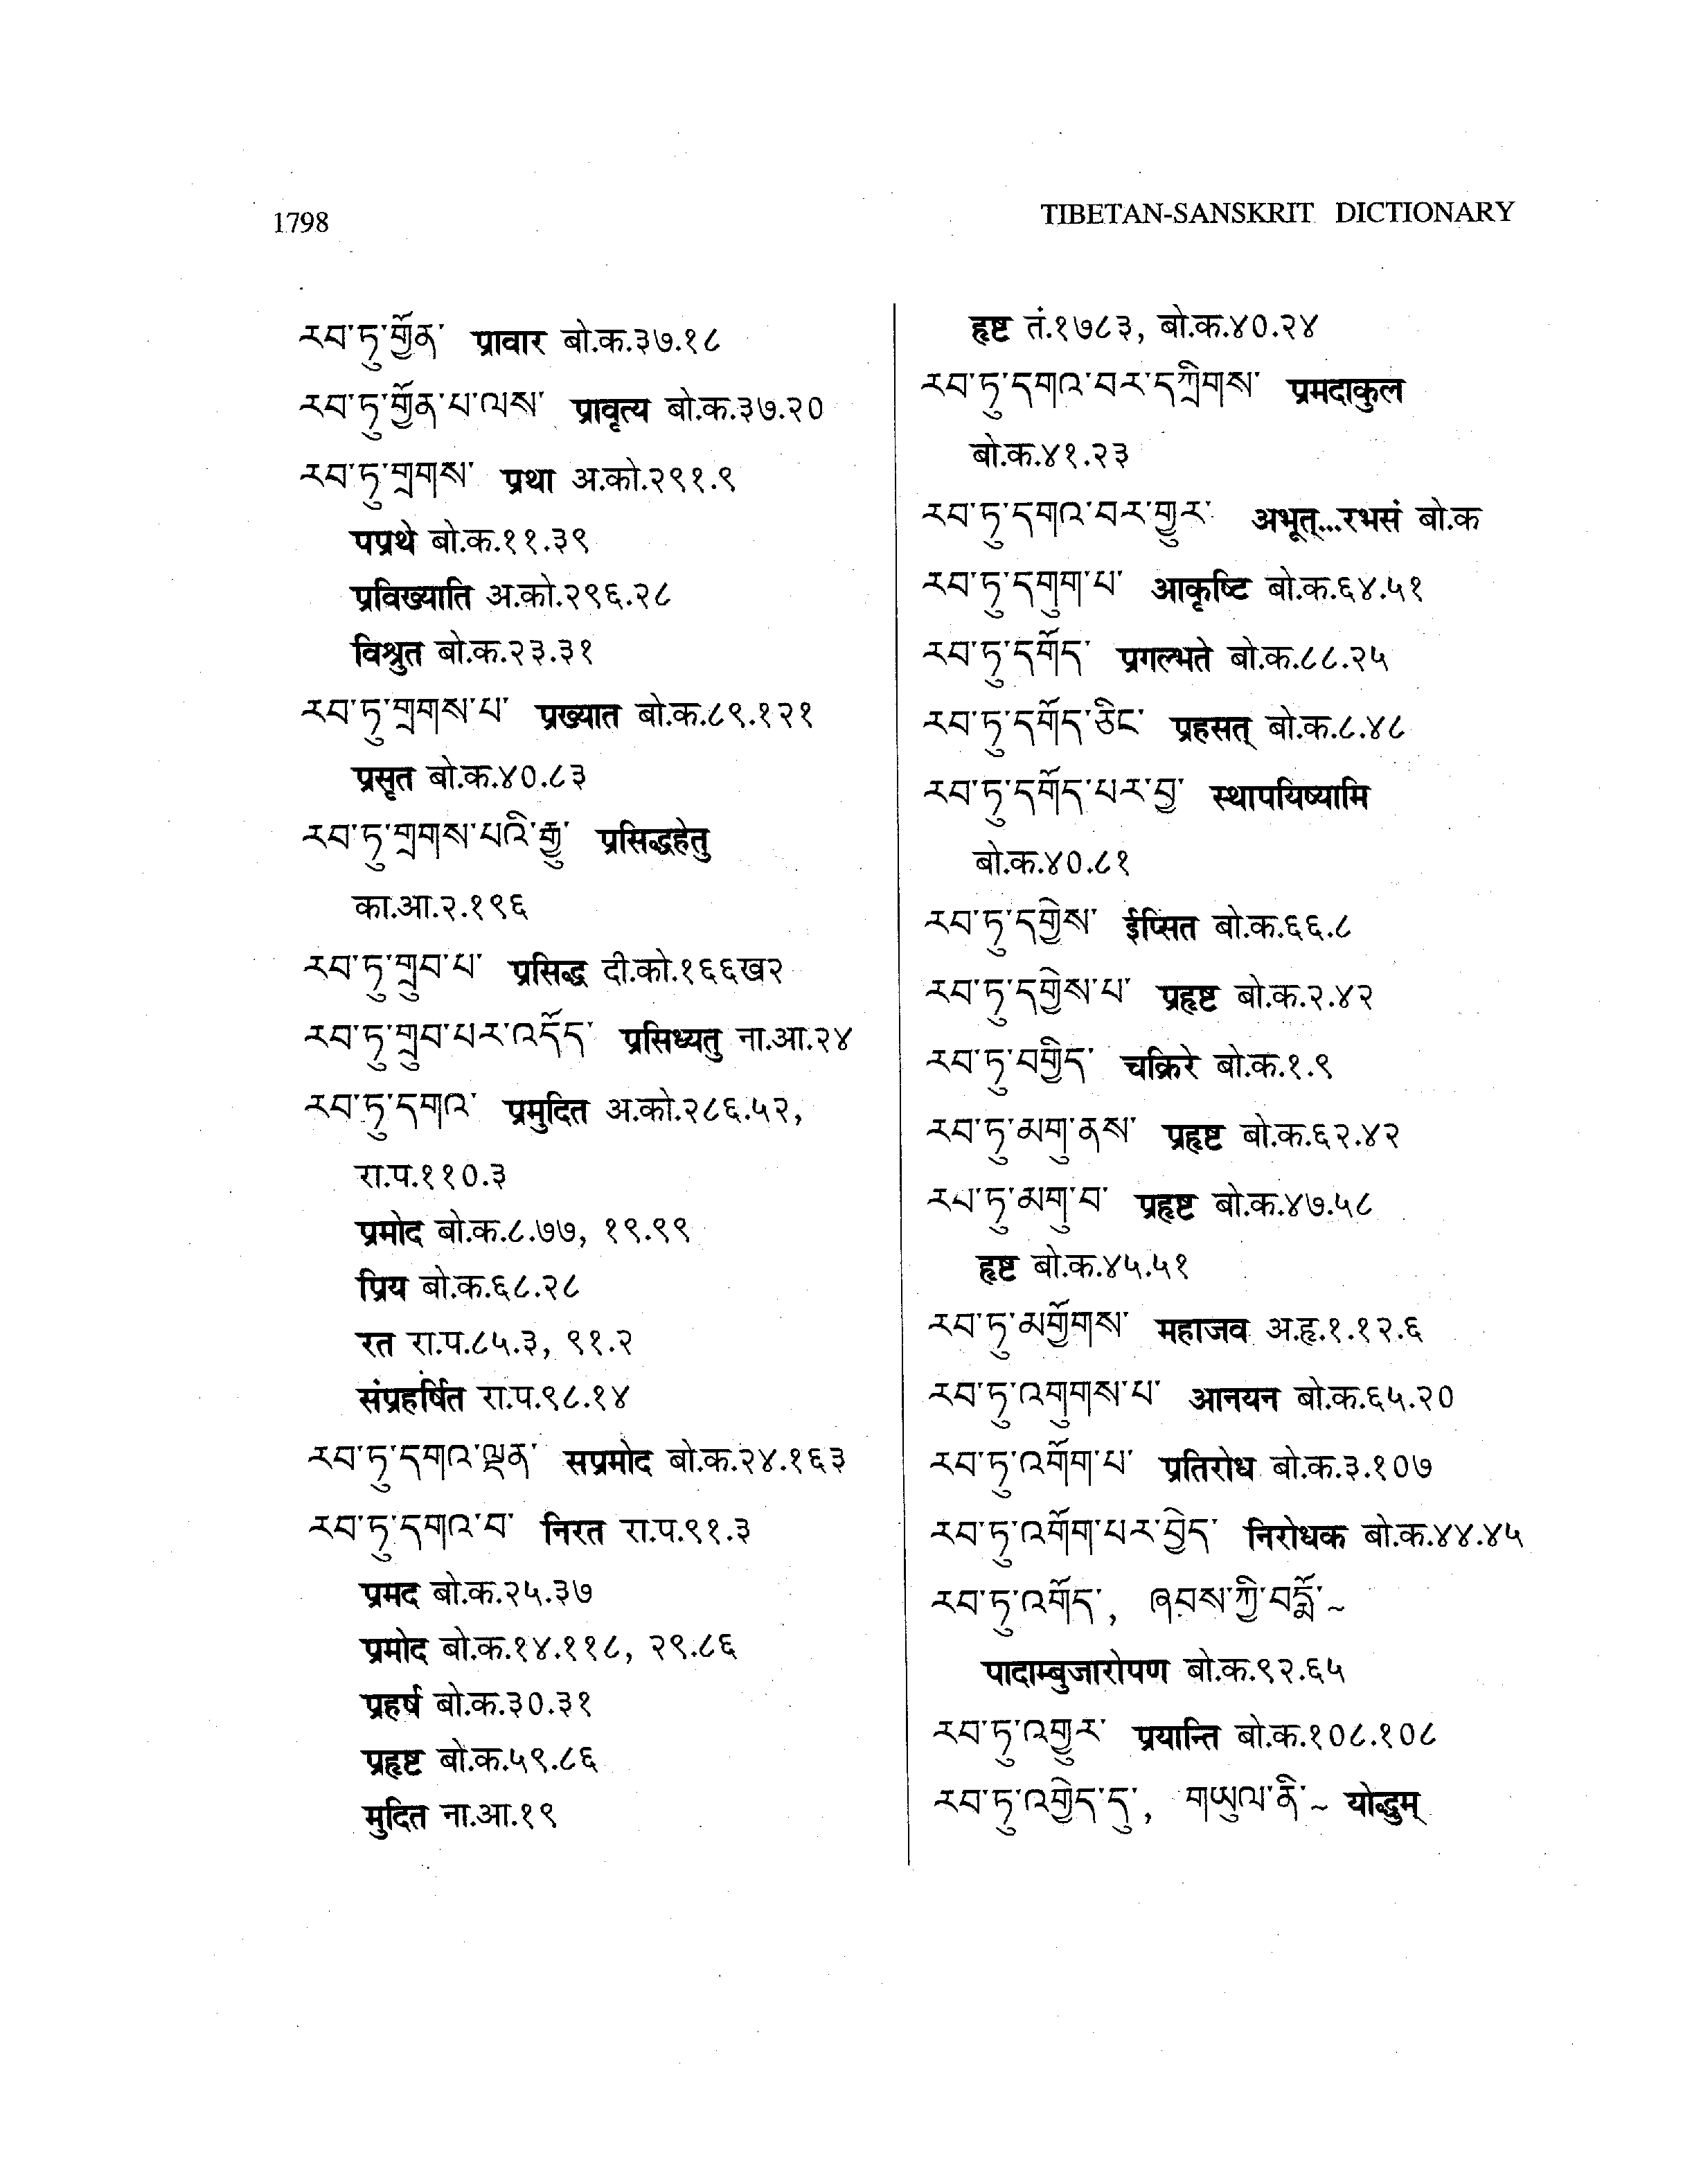 1798
TIBETAN-SANSKRIT DICTIONARY
རབ་ཏུ་གྱོན་ प्रावार बो.क.३७.१८
རབ་ཏུ་གྱོན་པ་ལས་ प्रावृत्य बो.क.३७.२०
རབ་ཏུ་གྲགས་ प्रथा अ.को.२९१.९
पप्रथे बो.क.११.३९
प्रविख्याति अ.को.२९६.२८
विश्रुत बो.क.२३.३१
རབ་ཏུ་གྲགས་པ་ प्रख्यात बो.क.८९.१२१
प्रसृत बो.क.४०.८३
རབ་ཏུ་གྲགས་པའི་རྒྱུ་ प्रसिद्धहेतु
का.आ.२.१९६
རབ་ཏུ་གྲུབ་པ་ प्रसिद्ध दी.को.१६६ख२
རབ་ཏུ་གྲུབ་པར་འདོད་ प्रसिध्यतु ना.आ.२४
རབ་ཏུ་དགའ་ प्रमुदित अ.को.२८६.५२,
रा.प.११०.३
प्रमोद बो.क.८.७७, १९.९९
प्रिय बो.क.६८.२८
रत रा.प.८५.३, ९१.२
संप्रहर्षित रा.प.९८.१४
རབ་ཏུ་དགའ་ལྡན་ सप्रमोद बो.क.२४.१६३
རབ་ཏུ་དགའ་བ་ निरत रा.प.९१.३
प्रमद बो.क.२५.३७
प्रमोद बो.क.१४.११८, २९.८६
प्रहर्ष बो.क.३०.३१
प्रहृष्ट बो.क.५९.८६
मुदित ना.आ.१९
हृष्ट तं.१७८३, बो.क.४०.२४
རབ་ཏུ་དགའ་བར་དཀྲིགས་ प्रमदाकुल
बो.क.४१.२३
རབ་ཏུ་དགའ་བར་གྱུར་ अभूत्...रभसं बो.क
རབ་ཏུ་དགུག་པ་ आकृष्टि बो.क.६४.५१
རབ་ཏུ་དགོད་ प्रगल्भते बो.क.८८.२५
རབ་ཏུ་དགོད་ཅིང་ प्रहसत् बो.क.८.४८
རབ་ཏུ་དགོད་པར་བྱ་ स्थापयिष्यामि
बो.क.४०.८१
རབ་ཏུ་དགྱེས་ ईप्सित बो.क.६६.८
རབ་ཏུ་དགྱེས་པ་ प्रहृष्ट बो.क.२.४२
རབ་ཏུ་བགྱིད་ चक्रिरे बो.क.१.९
རབ་ཏུ་མགུ་ནས་ प्रहृष्ट बो.क.६२.४२
རབ་ཏུ་མགུ་བ་ प्रहृष्ट बो.क.४७.५८
हृष्ट बो.क.४५.५१
རབ་ཏུ་མགྱོགས་ महाजव अ.हृ.१.१२.६
རབ་ཏུ་འགུགས་པ་ आनयन बो.क.६५.२०
རབ་ཏུ་འགོག་པ་ प्रतिरोध बो.क.३.१०७
རབ་ཏུ་འགོག་པར་བྱེད་ निरोधक बो.क.४४.४५
རབ་ཏུ་འགོད་, ཞབས་ཀྱི་པདྨོ་~
पादाम्बुजारोपण बो.क.९२.६५
རབ་ཏུ་འགྱུར་ प्रयान्ति बो.क.१०८.१०८
རབ་ཏུ་འགྱེད་དུ་, གཡུལ་ནི་~ योद्धुम्